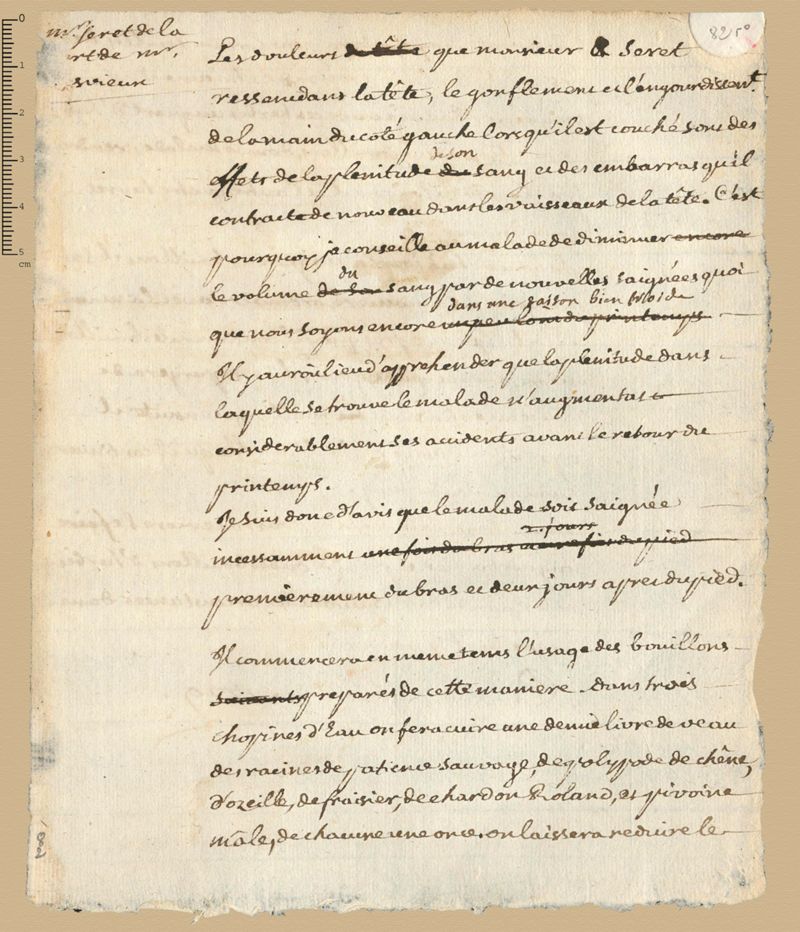 mr. seret de la
rt de mr.
svieux
82 ro
Les douleurs de tête que monsieur & Seret
ressent dans la tête, le gonflement et l'engourdissent.
de la main du coté gauche lorsqu'il est couché sont des
de son
effets de la plenitude du sang et des embarras qu'il
contracte de nouveau dans les vaisseaux de la tête. C'est
pourquoy je conseille au malade de diminuer encore
du
le volume de son sang par de nouvelles saignées quoi
dans une saison bien froide
que nous soyons encore un peu loin du printemps
Il y auroit lieu d'apprehender que la plenitude dans
laquelle se trouve le malade n'augmentat
considerablement ses accidents avant le retour du
printemps.
Je suis donc d'avis que le malade soit saignée
2. jours
incessamment une fois du bras une fois du pied
premièrement du bras et deux jours apres du pied.
Il commencera en meme tems l'usage des bouillons
suivants preparés de cette maniere. dans trois
chopines d'Eau on fera cuire une demie livre de veau
des racines de patience sauvage, de polypode de chêne,
d'ozeille, de fraisier, de chardon Roland, et pivoine
mâle, de chacune une once. on laissera reduire le